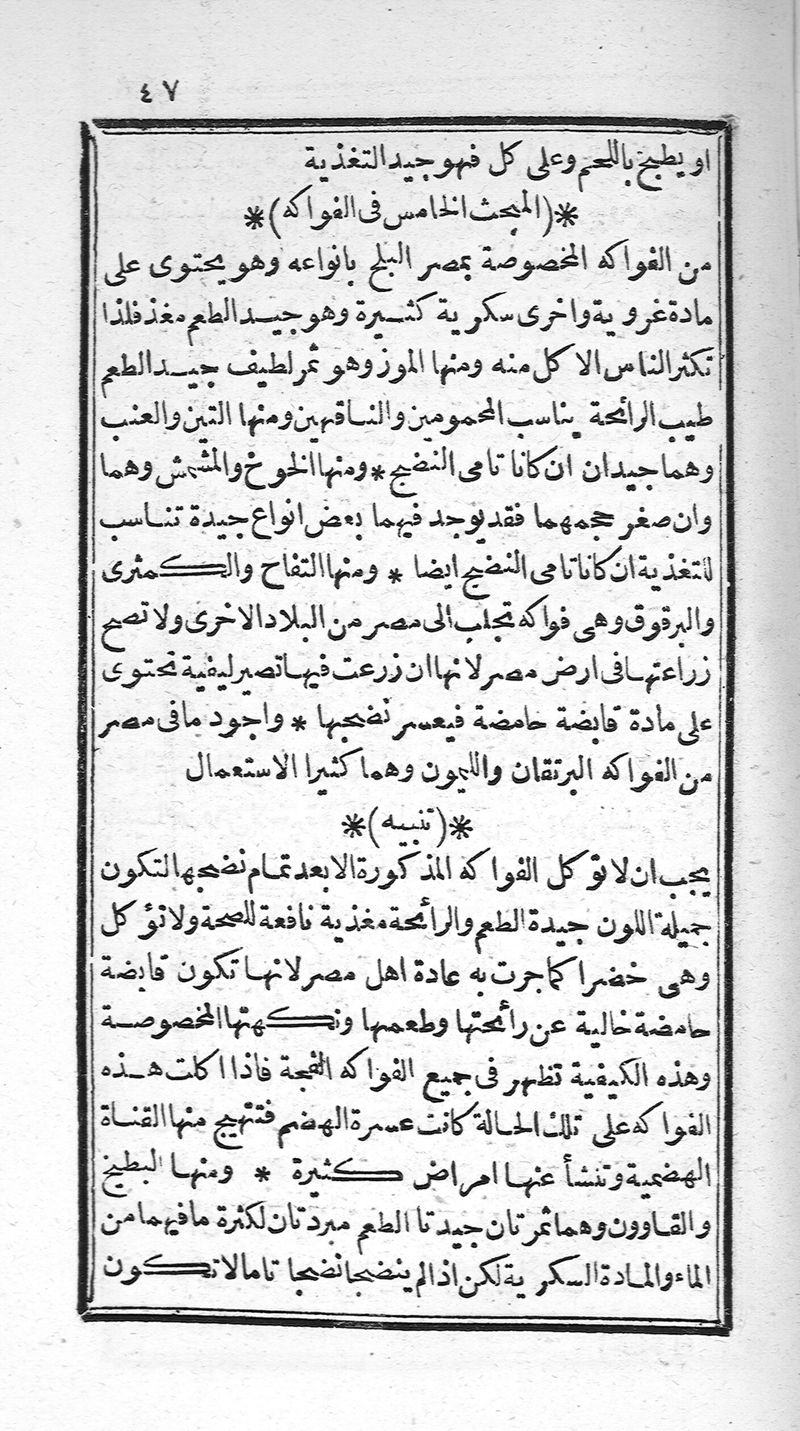 ٤٧
او يطبخ باللحم وعلى كل فهو جيد التغذية
*(المبحث الخامس فى الفواكه)*
من الفواكه المخصوصة بمصر البلح بانواعه وهو يحتوى على
مادة غروية واخرى سكرية كثيرة وهو جيد الطعم مغذ فلذا
تكثر الناس الاكل منه ومنها الموز وهو ثمر لطيف جيد الطعم
طيب الرائحة يناسب المحمومين والناقهين ومنها التين والعنب
وهما جيدان ان كانا تامى النضج * ومنها الخوخ والمشمش وهما
وان صغر حجمهما فقد يوجد فيهما بعض انواع جيدة تناسب
للتغذية ان كانا تامى النضج ايضا * ومنها التفاح والكمثرى
والبرقوق وهى فواكه تجلب الى مصر من البلاد الاخرى ولا تصح
زراعتها فى ارض مصر لانها ان زرعت فيها تصير ليفية تحتوى
على مادة قابضة حامضة فيعسر نضجها * واجود ما فى مصر
من الفواكه البرتقان والليمون وهما كثيرا الاستعمال
*(تنبيه)*
يجب ان لا تؤكل الفواكه المذكورة الا بعد تمام نضجها لتكون
جميلة اللون جيدة الطعم والرائحة مغذية نافعة للصحة ولا تؤكل
وهى خضرا كما جرت به عادة اهل مصر لانها تكون قابضة
حامضة خالية عن رائحتها وطعمها ونكهتها المخصوصة
وهذه الكيفية تظهر فى جميع الفواكه الفجة فاذا اكلت هذه
الفواكه على تلك الحالة كانت عسرة الهضم فتتهيج منها القناة
الهضمية وتنشأ عنها امراض كثيرة * ومنها البطيخ
والقاوون وهما ثمرتان جيدتا الطعم مبردتان لكثرة ما فيهما من
الماء والمادة السكرية لكن اذا لم ينضجا نضجا تاما لا تكون